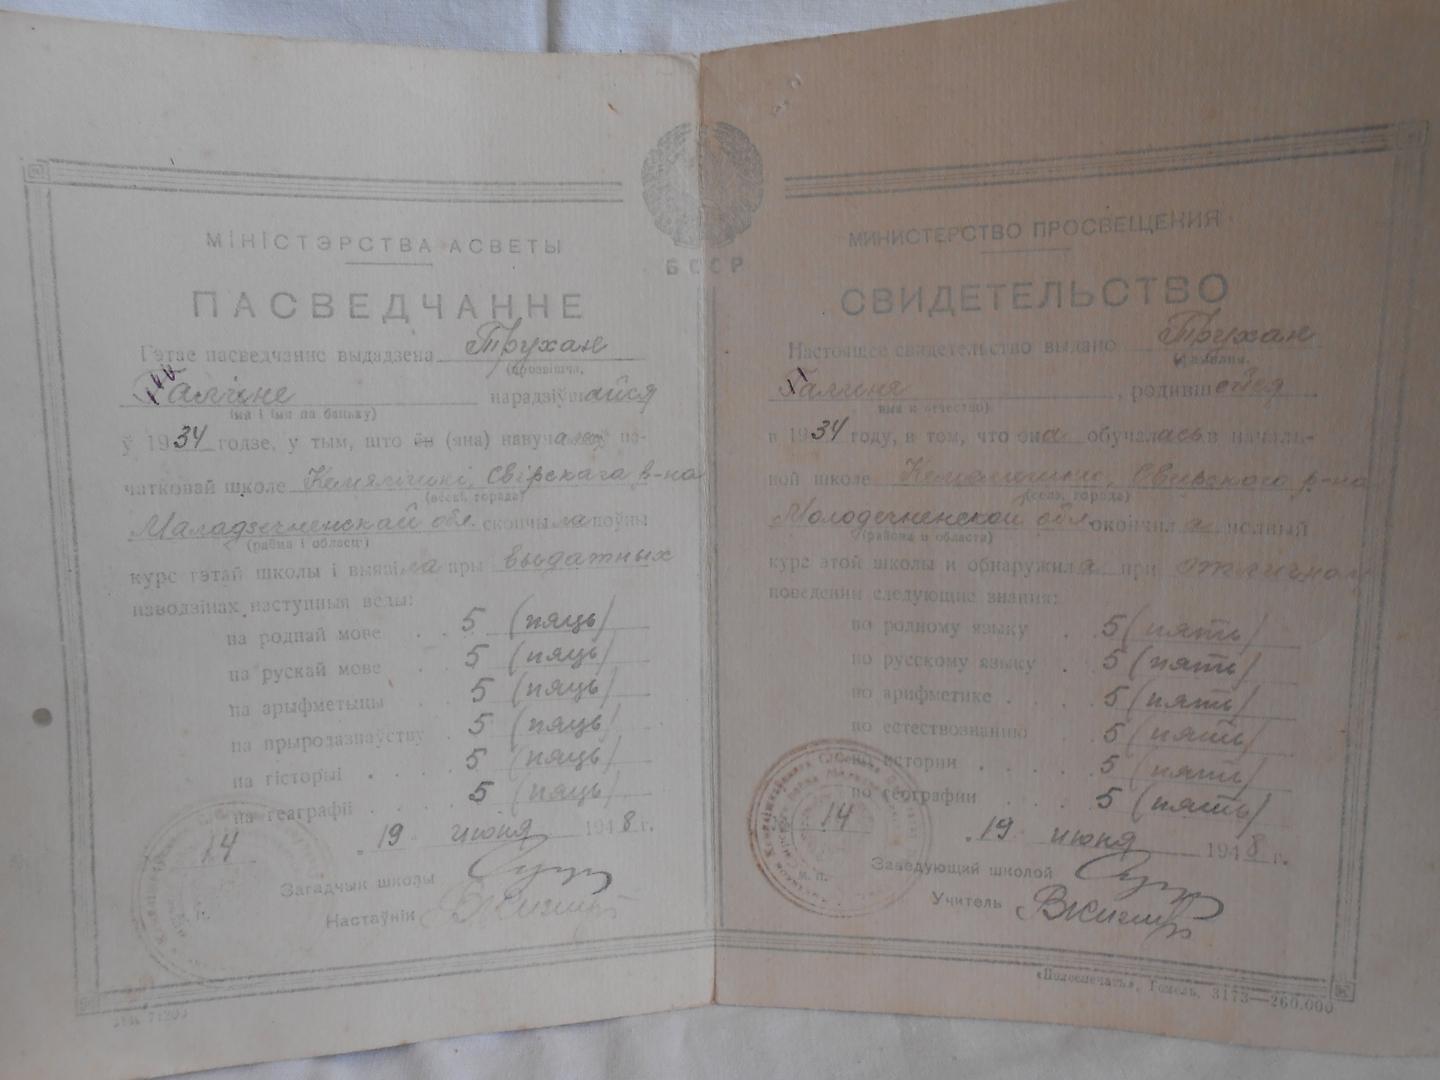 БССР
МІНІСТЭРСТВА АСВЕТЫ
ПАСВЕДЧАННЕ
Гэтае пасведчанне выдадзена Трухан
(прозвішча,
Галіне нарадзіўшайся
імя і імя па бацьку)
ў 1934 годзе, у тым, што ён (яна) навучалася ў па-
чатковай школе Свірскага р-на
(вёскі, горада)
Маладзечненскай обл. скончыла поўны
(раёна і обласці)
курс гэтай школы і выявіла пры выдатных
паводзінах наступныя веды:
па роднай мове . . 5 (пяць)
па рускай мове . . 5 (пяць)
па арыфметыцы . 5 (пяць)
па прыродазнаўству . 5 (пяць)
па гісторыі . . . 5 (пяць)
па геаграфіі . . . 5 (пяць)
14 . 19 июня 1948 г.
Загадчык школы
Настаўнік
МИНИСТЕРСТВО ПРОСВЕЩЕНИЯ
СВИДЕТЕЛЬСТВО
Настоящее свидетельство выдано Трухан
(фамилия,
Галине, родившейся
имя и отчество)
в 1934 году, в том, что она обучалась в началь-
ной школе Свирского р-на
(села, города)
Молодечненской обл. окончила полный
(района и области)
курс этой школы и обнаружила при отличном
поведении следующие знания:
по родному языку . 5 (пять)
по русскому языку . 5 (пять)
по арифметике . . 5 (пять)
по естествознанию . 5 (пять)
по истории . . . . 5 (пять)
по географии . . . 5 (пять)
14 . 19 июня 1948 г.
М. П.
Заведующий школой
Учитель
«Полеспечать», Гомель, 3173—260.000